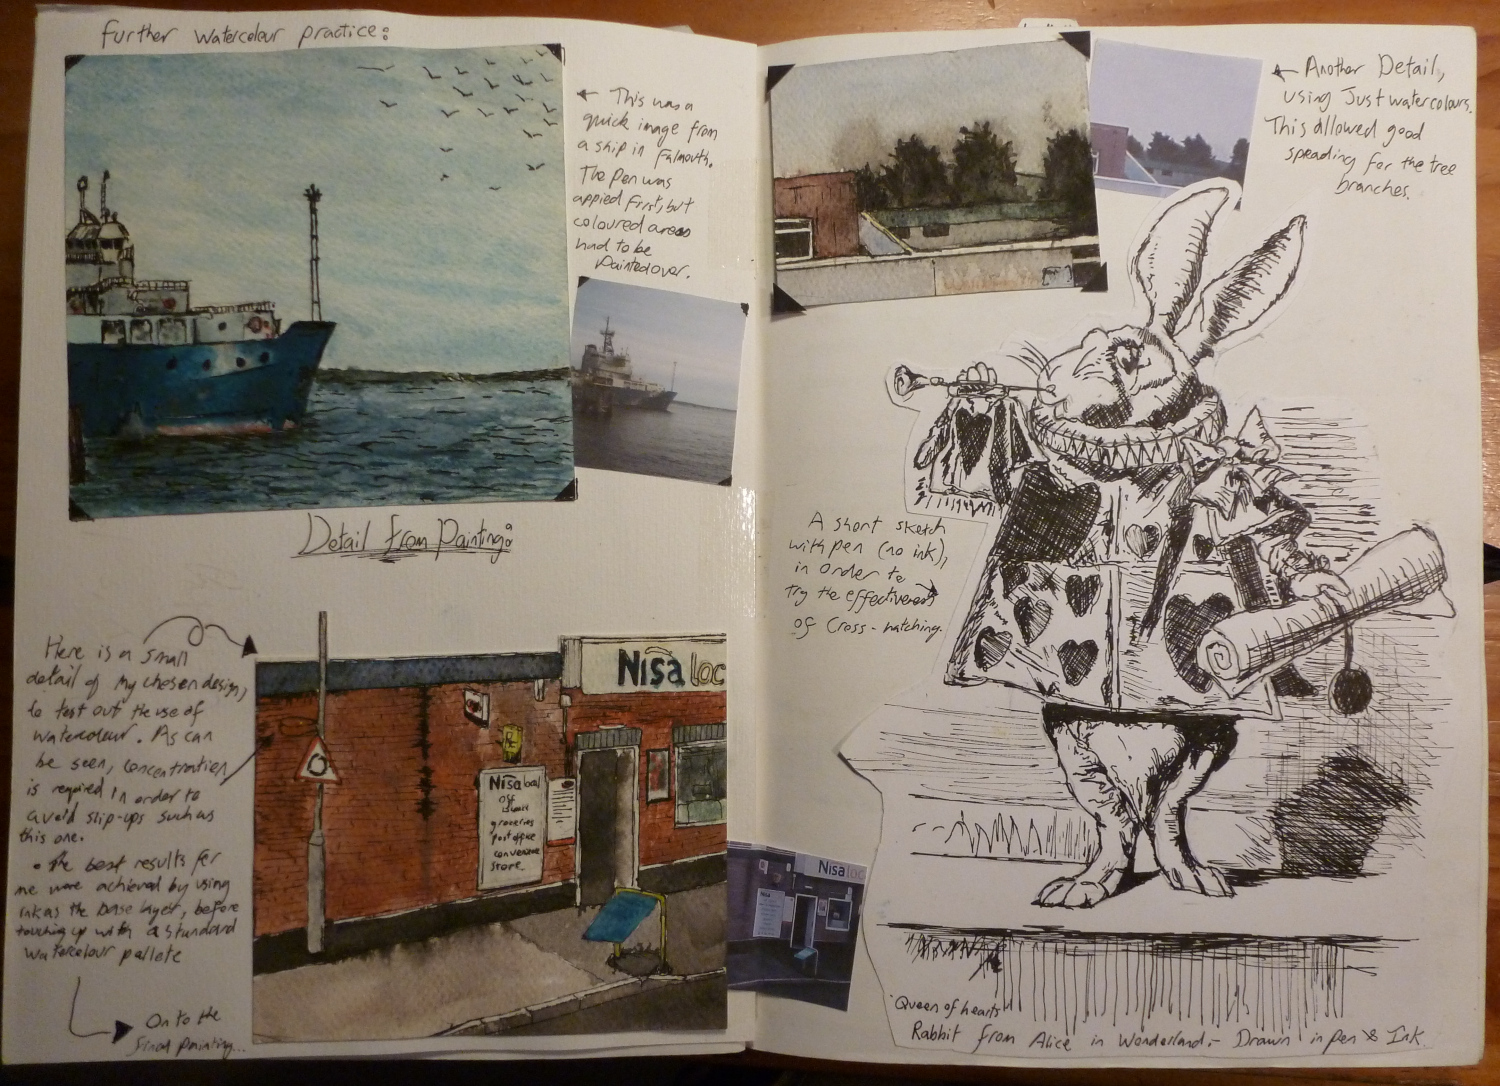 further watercolour practice:
← This was a
quick image from
a ship in Falmouth.
The pen was
appied first, but
coloured areas
had to be
painted over.
Detail from Painting:
Here is a small
detail of my chosen design,
to test out the use of
watercolour. As can
be seen, concentration
is required in order to
avoid slip-ups such as
this one.
• The best results for
me were achieved by using
ink as the base layer, before
touching up with a standard
watercolour pallete
On to the
final painting...
Nisa loc
Nisa local
off
groceries
post office
convenience
store.
Nisa loc
Nisa
← Another Detail,
using Just watercolours.
This allowed good
spreading for the tree
branches.
A short sketch
with pen (no ink),
in order to
try the effectiveness
of cross-hatching.
'Queen of hearts'
Rabbit from Alice in Wonderland:- Drawn in pen & Ink.